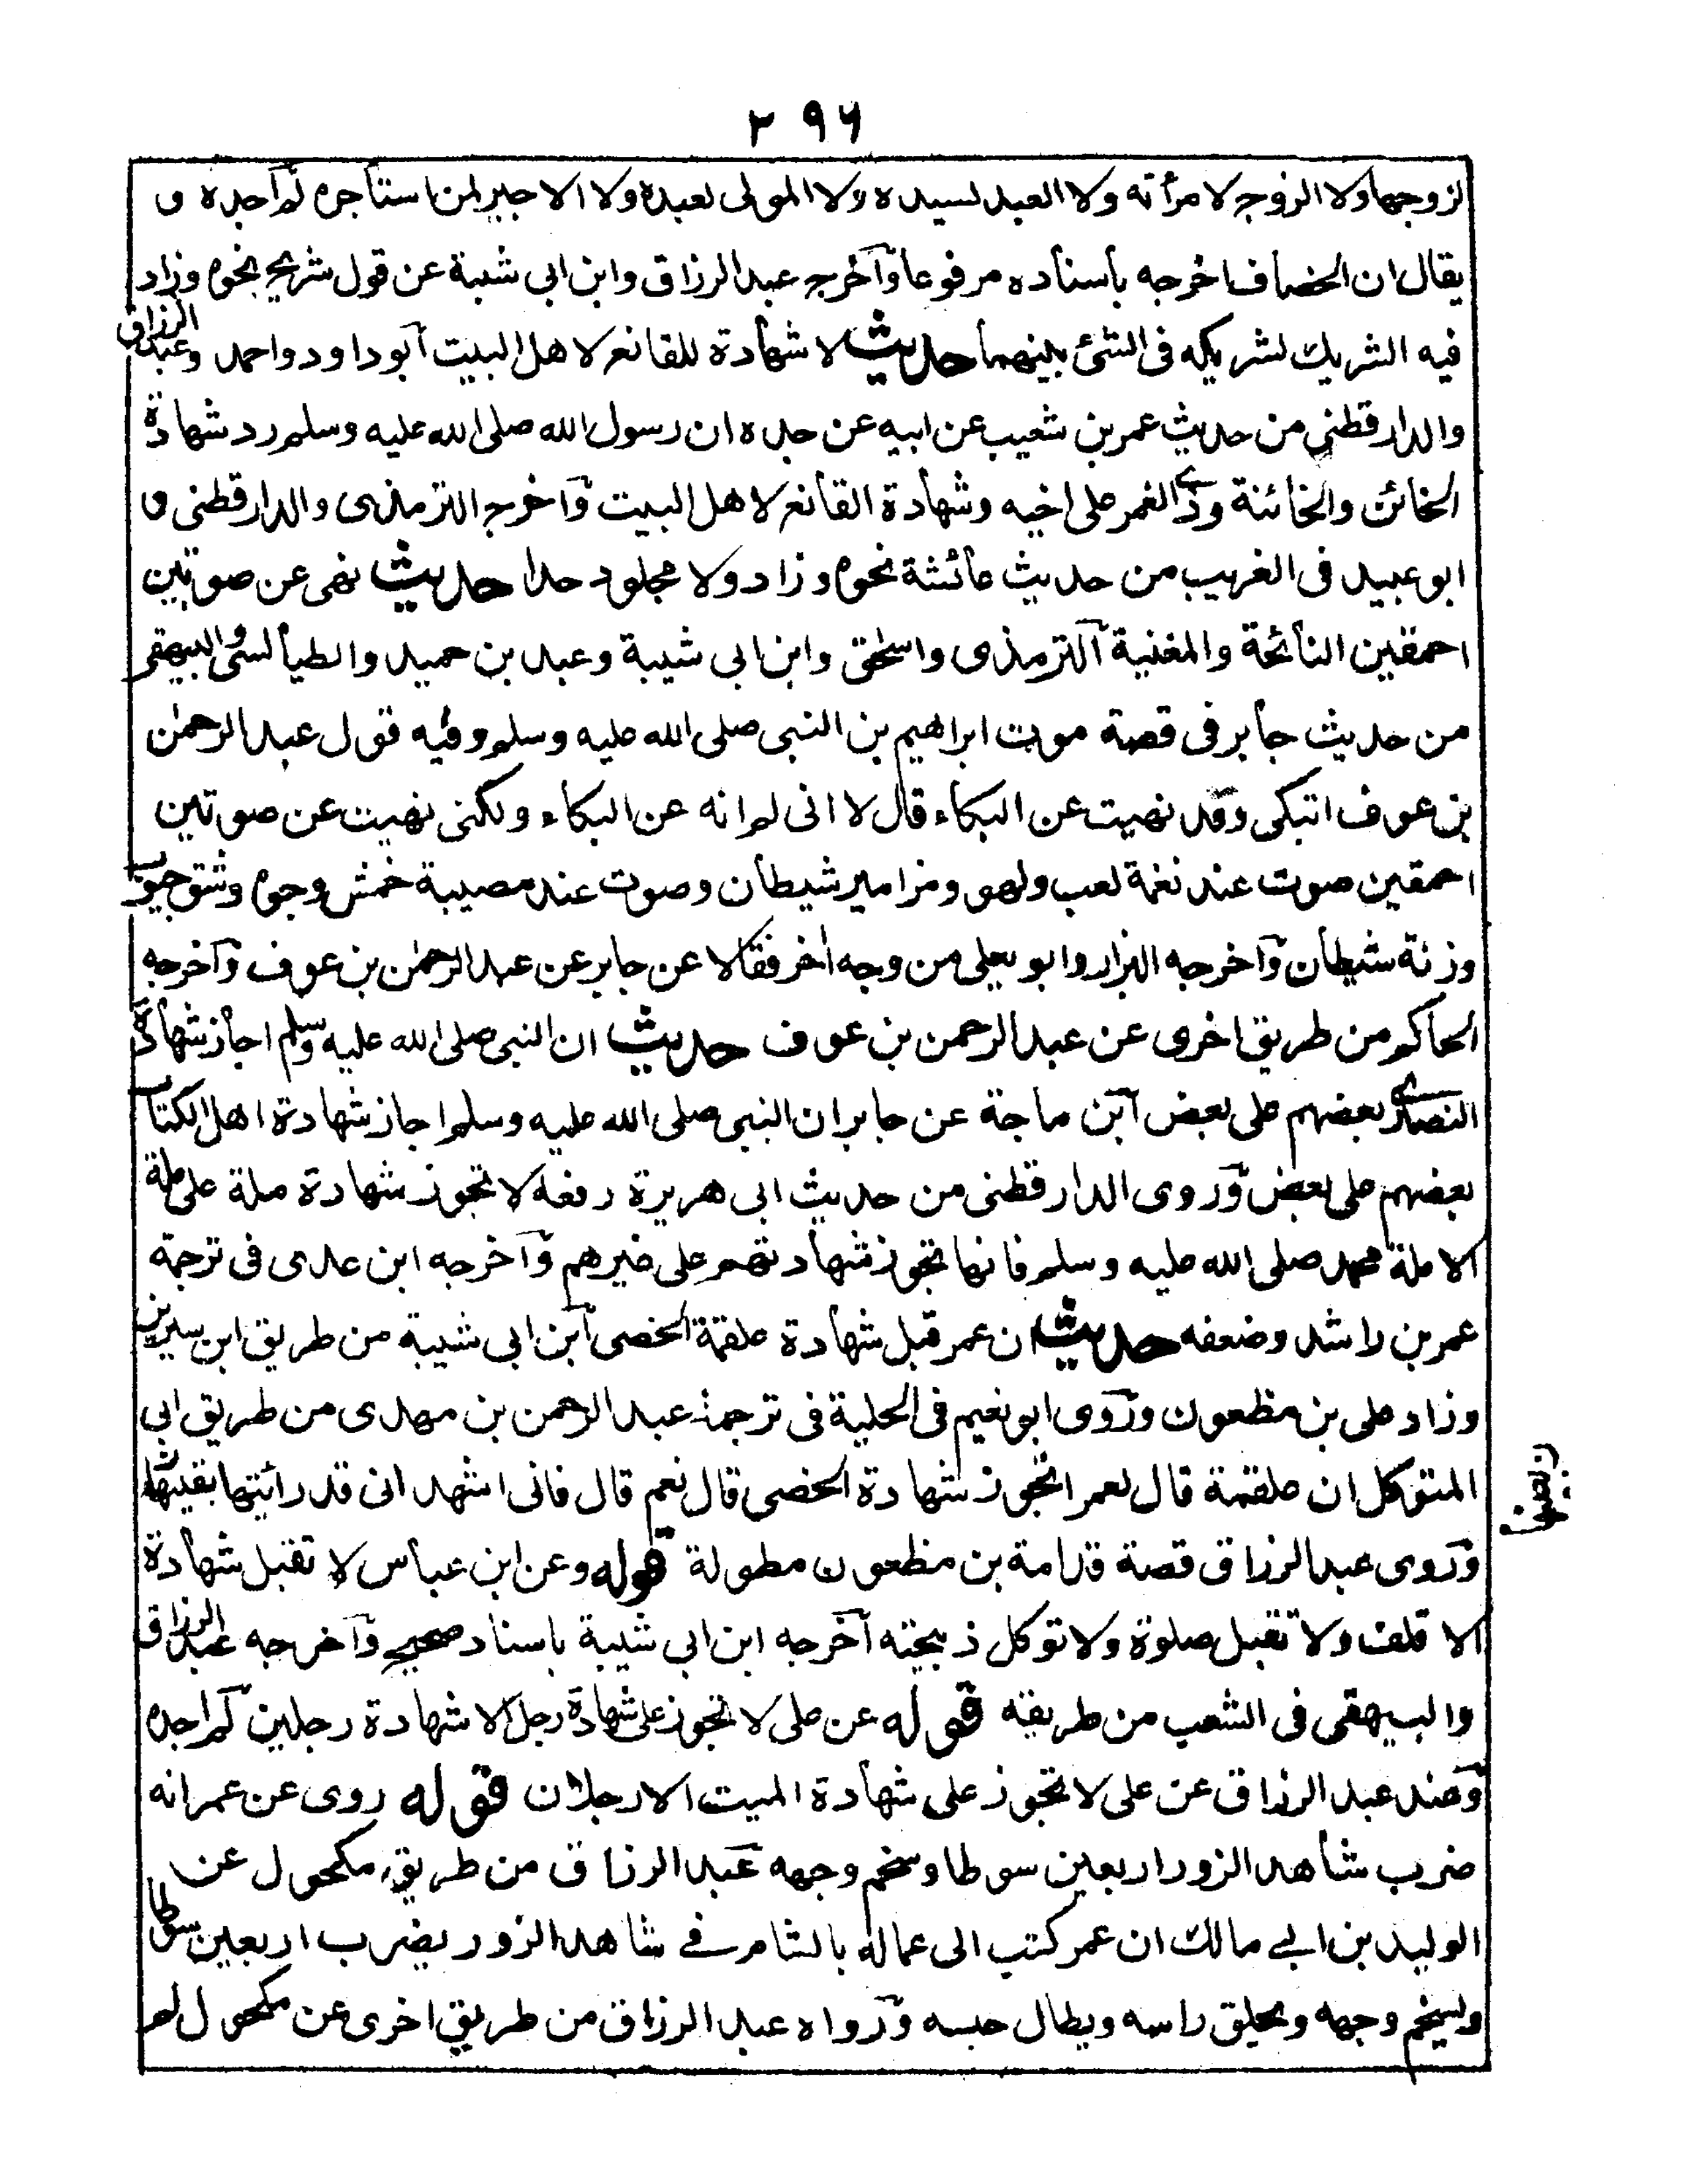 ٢٩٦
لزوجها ولا الزوج لامرأته ولا العبد لسيده ولا المولى لعبده ولا الاجير لمن استأجره لم اجده و
يقال ان الخصاف اخرجه بأسناده مرفوعا وآخرجه عبد الرزاق وابن ابى شيبة عن قول شريح نحوه وزاد
فيه الشريك لشريكه فى الشئ بينهما حديث لا شهادة للقانع لاهل البيت آبوداود واحمد وعبد الرزاق
والدارقطنى من حديث عمر بن شعيب عن ابيه عن جده ان رسول الله صلى الله عليه وسلم رد شهادة
الخائن والخائنة وذى الغمر على اخيه وشهادة القانع لاهل البيت وآخرجه الترمذى والدارقطنى و
ابوعبيد فى الغريب من حديث عائشة نحوه وزاد ولا مجلود حدا حديث نهى عن صوتين
احمقين النائحة والمغنية آلترمذى واسحٰق وابن ابى شيبة وعبد بن حميد والطيالسى والبيهقى
من حديث جابر فى قصة موت ابراهيم بن النبى صلى الله عليه وسلم وفيه قول عبد الرحمٰن
بن عوف اتبكى وقد نهيت عن البكاء قال لا انى لم انه عن البكاء ولكنى نهيت عن صوتين
احمقين صوت عند نغمة لعب ولهو ومزامير شيطان وصوت عند مصيبة خمش وجوه وشق جيوب
وزنة شيطان وآخرجه البزار وابو يعلى من وجه اٰخر فقالا عن جابر عن عبد الرحمٰن بن عوف وآخرجه
الحاكم من طريق اخرى عن عبد الرحمن بن عوف حديث ان النبى صلى الله عليه وسلم اجاز شهادة
النصارى بعضهم على بعض آبن ماجة عن جابر ان النبى صلى الله عليه وسلم اجاز شهادة اهل الكتاب
بعضهم على بعض وروى الدارقطنى من حديث ابى هريرة رفعه لا تجوز شهادة ملة على ملة
الا ملة محمد صلى الله عليه وسلم فانها تجوز شهادتهم على غيرهم وآخرجه ابن عدى فى ترجمة
عمر بن راشد وضعفه حديث ان عمر قبل شهادة علقمة الخصى آبن ابى شيبة من طريق ابن سيرين
وزاد على بن مظعون وروى ابو نعيم فى الحلية فى ترجمة عبد الرحمن بن مهدى من طريق ابى
المتوكل ان علقمة قال لعمر اتجوز شهادة الخصى قال نعم قال فانى اشهد انى قد رائيتها بقيئها
وروى عبد الرزاق قصة قدامة بن مظعون مطولة قوله وعن ابن عباس لا تقبل شهادة
الاقلف ولا تقبل صلوة ولا توكل ذبيحته آخرجه ابن ابى شيبة باسناد صحيح وآخرجه عبد الرزاق
والبيهقى فى الشعب من طريقه قوله عن على لا تجوز على شهادة رجل الا شهادة رجلين لم اجده
وعند عبد الرزاق عن على لا تجوز على شهادة الميت الا رجلان قوله روى عن عمر انه
ضرب شاهد الزور اربعين سوطا وسخم وجهه عبد الرزاق من طريق مكحول عن
الوليد بن ابے مالك ان عمر كتب الى عماله بالشام فے شاهد الزور يضرب اربعين سوطا
ويسخم وجهه ويحلق راسه ويطال حبسه ورواه عبد الرزاق من طريق اخرى عن مكحول لم